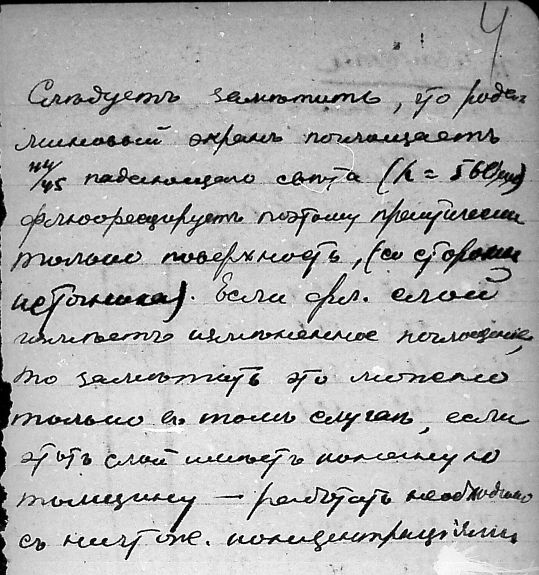 4
Слѣдуетъ замѣтить, что рода-
миновый экранъ поглощаетъ
44/45 падающаго свѣта (λ = 560 μμ)
флюоресцируетъ поэтому практически
только поверхность, (со стороны
источника). Если фл. слой
имѣетъ измѣненное поглощеніе,
то замѣтить это можно
только въ томъ случаѣ, если
этотъ слой имѣетъ конечную
толщину — работать необходимо
съ ничтож. концентраціями